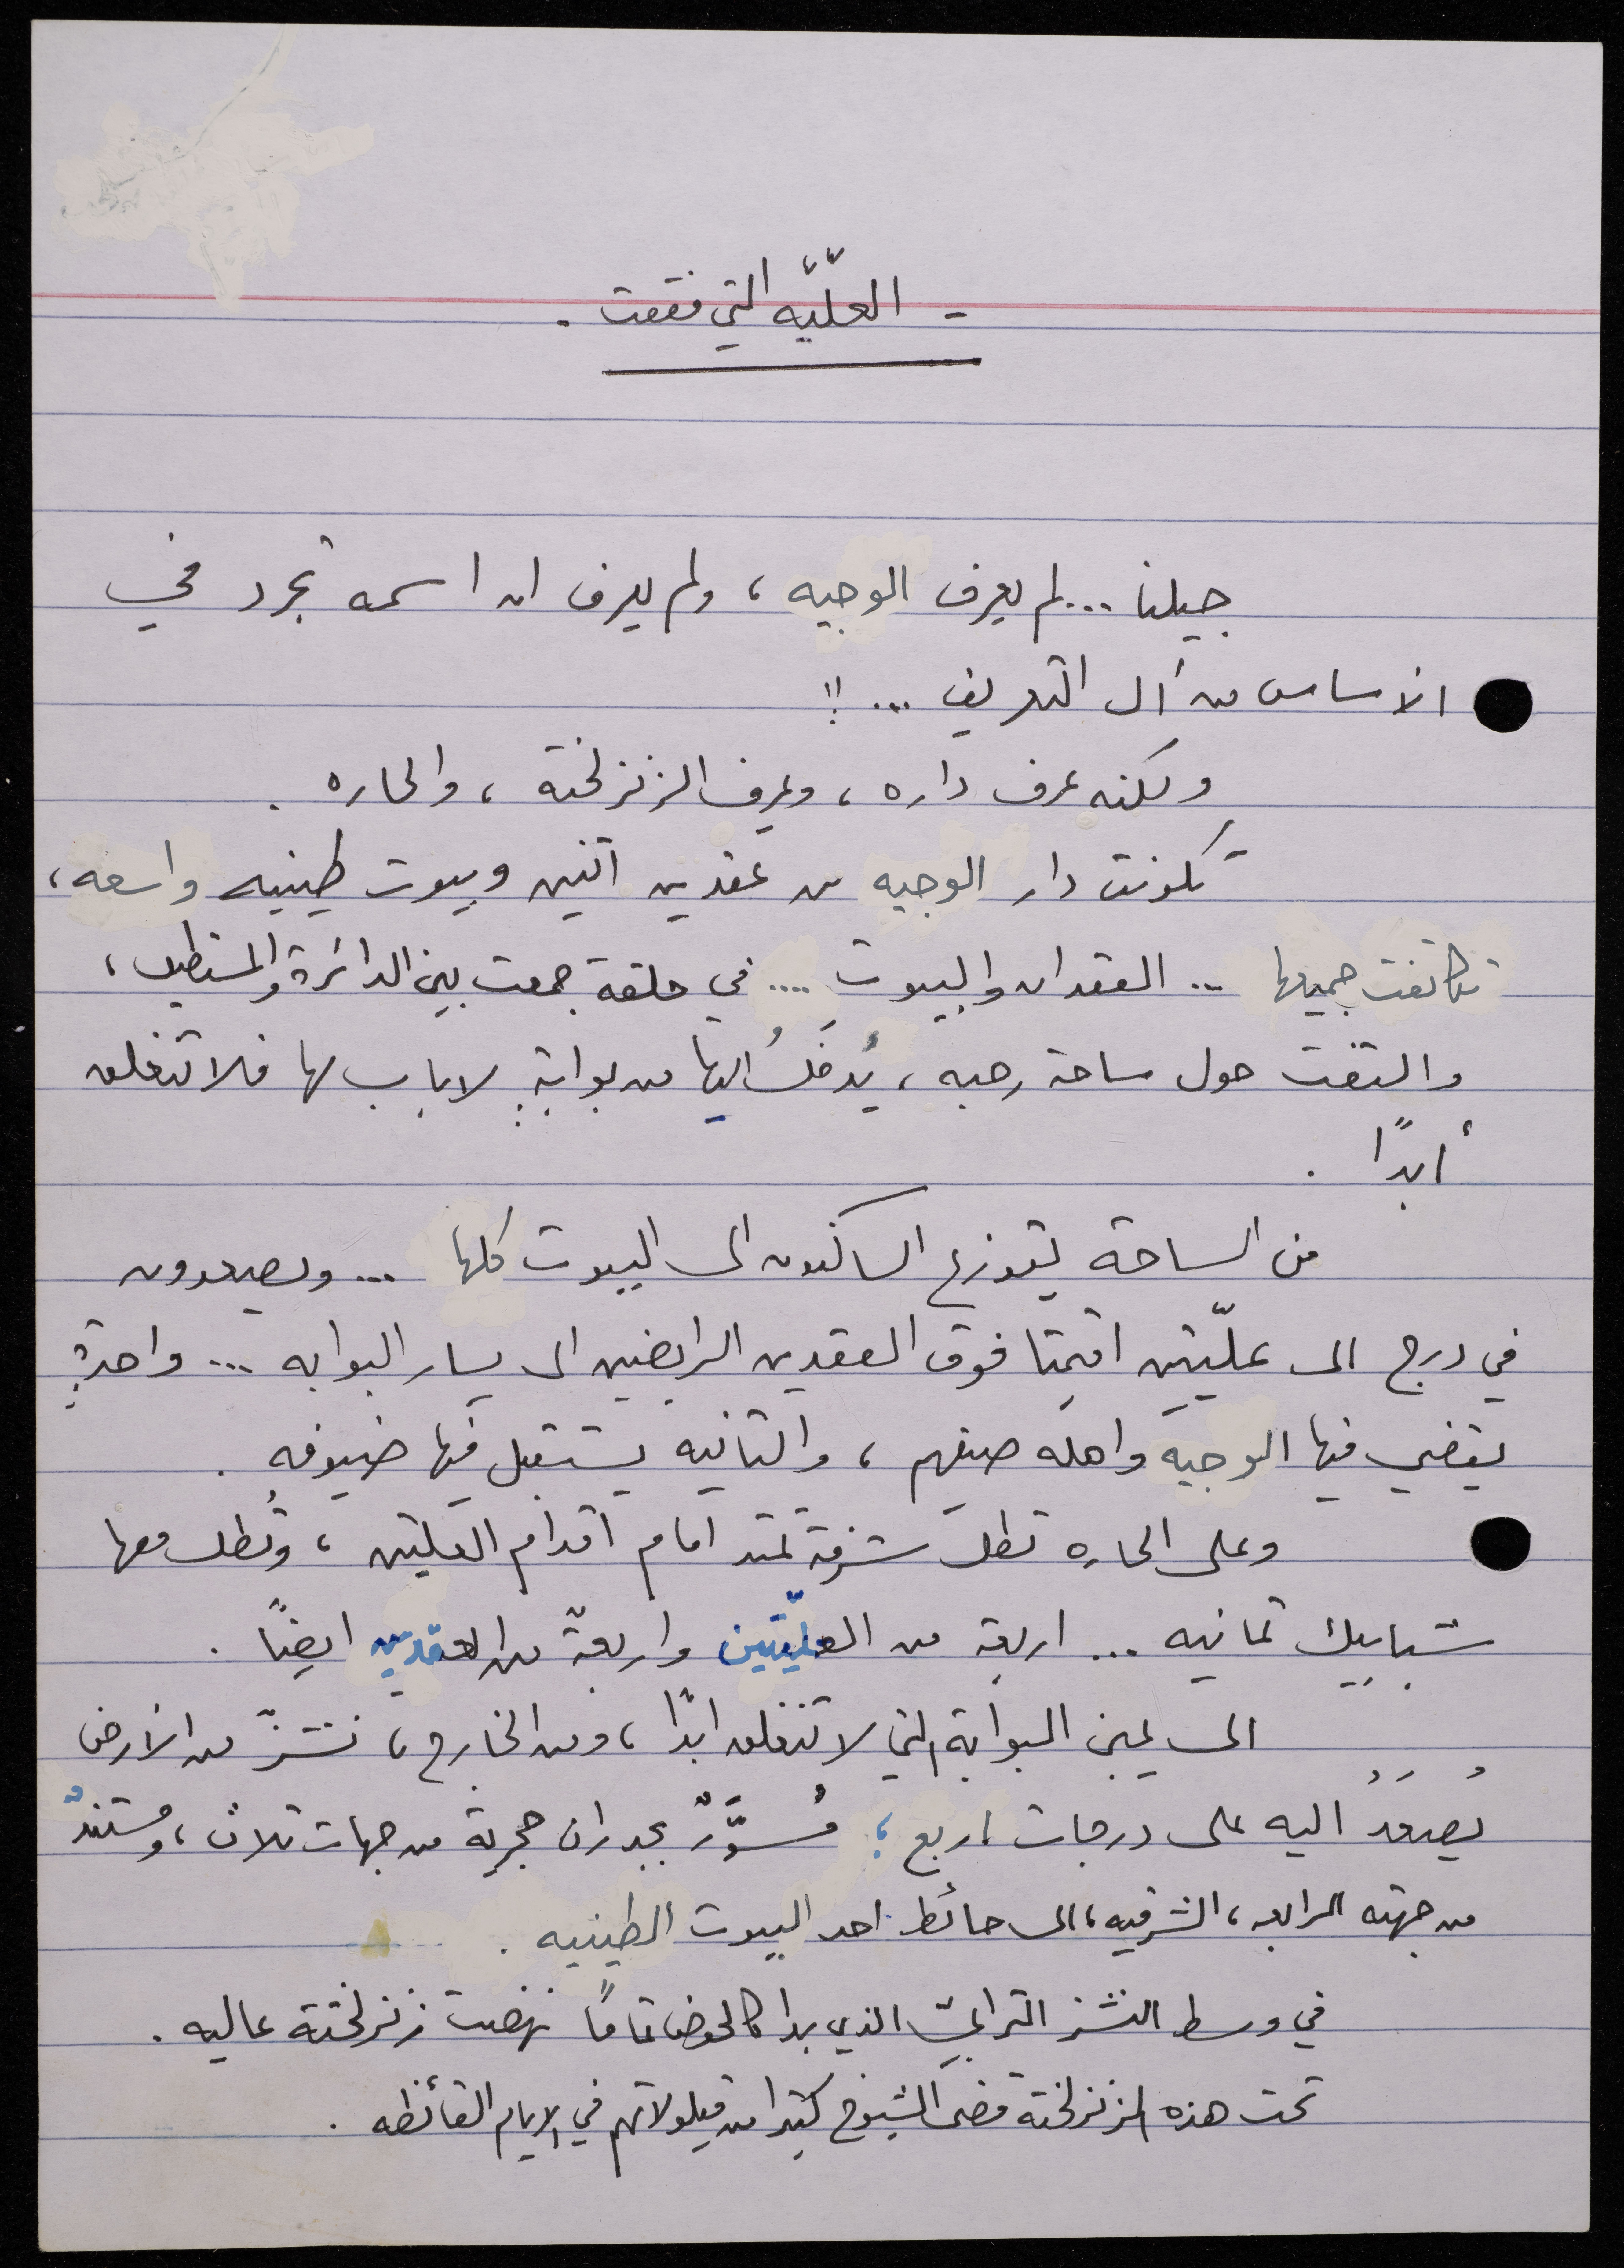 - العلّيّه التي فقعت .
جيلنا ... لم يعرف الوجيه ، ولم يعرف ان اسمه تجرد في
الاساس من أل التعريف ... !!
ولكنه عرف داره ، وعرف الزنزلخته ، والحاره .
تكونت دار الوجيه من عقدين اثنين وبيوت طينيه واسعه ،
تكاتفت جميعها .. العقدان والبيوت .... في حلقة جمعت بين الدائرة والمستطيل ،
والتفت حول ساحة رحبه ، يُدخَلُ اليها من بوابةٍ لا باب لها فلا تنغلق
أبدًا .
من الساحة يتوزع الساكنون الى البيوت كلها ... ويصعدون
في درج الى علّيتين اقيمتا فوق العقدين الرابضين الى يسار البوابه ... واحدةٍ
يقضي فيها الوجيه واهله صيفهم ، والثانيه يستقبل فيها ضيوفه .
وعلى الحاره تطل شرفة تمتد امام اقدام العليتين ، وتُطل معها
شبابيك ثمانيه ... اربعة من العليّتين واربعة من العقدين ايضًا .
الى يمين البوابة التي لا تنغلق ابدًا ، ومن الخارج ، نشزٌ من الأرض
يُصعَدُ اليه على درجات اربع ؛ مُسوَّرٌ بجدران حجرية من جهات ثلاث ، ومستندٌ
من جهته الرابعه ، الشرقيه ، الى حائط احد البيوت الطينيه .
في وسط النشز الترابيّ الذي بدا كالحوض تمامًا نهضت زنزلخته عاليه .
تحت هذه الزنزلخته قضى الشيوخ كثيرا من قيلولاتهم في الايام القائظه .